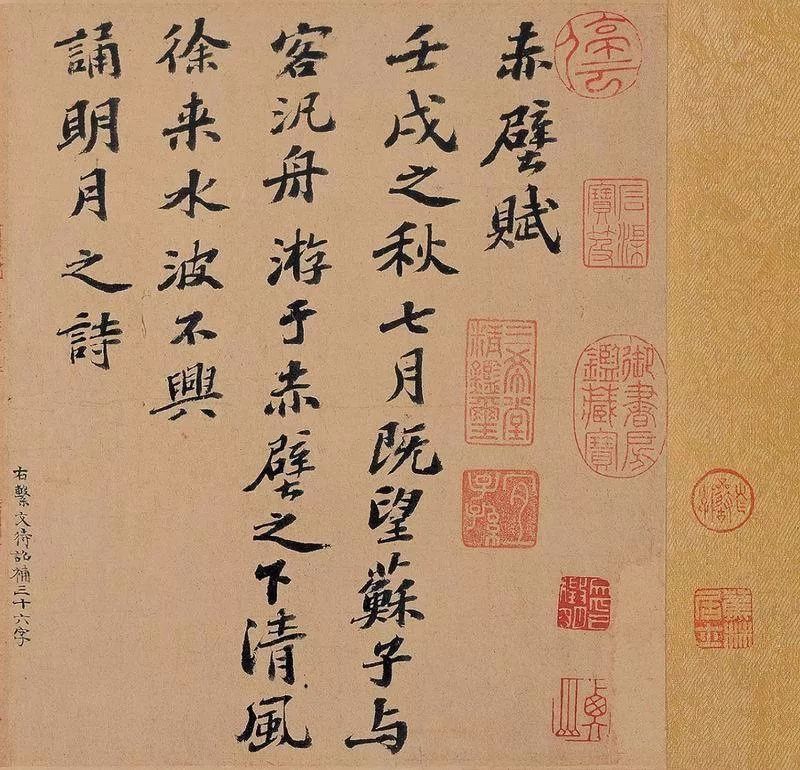 停云
石渠寶笈
御書房鑑藏寶
三希堂精鑑璽
宜子孫
赤壁賦
壬戌之秋七月既望蘇子与
客汎舟游于赤壁之下清風
徐来水波不興
誦明月之詩
右繫文待詔補三十六字